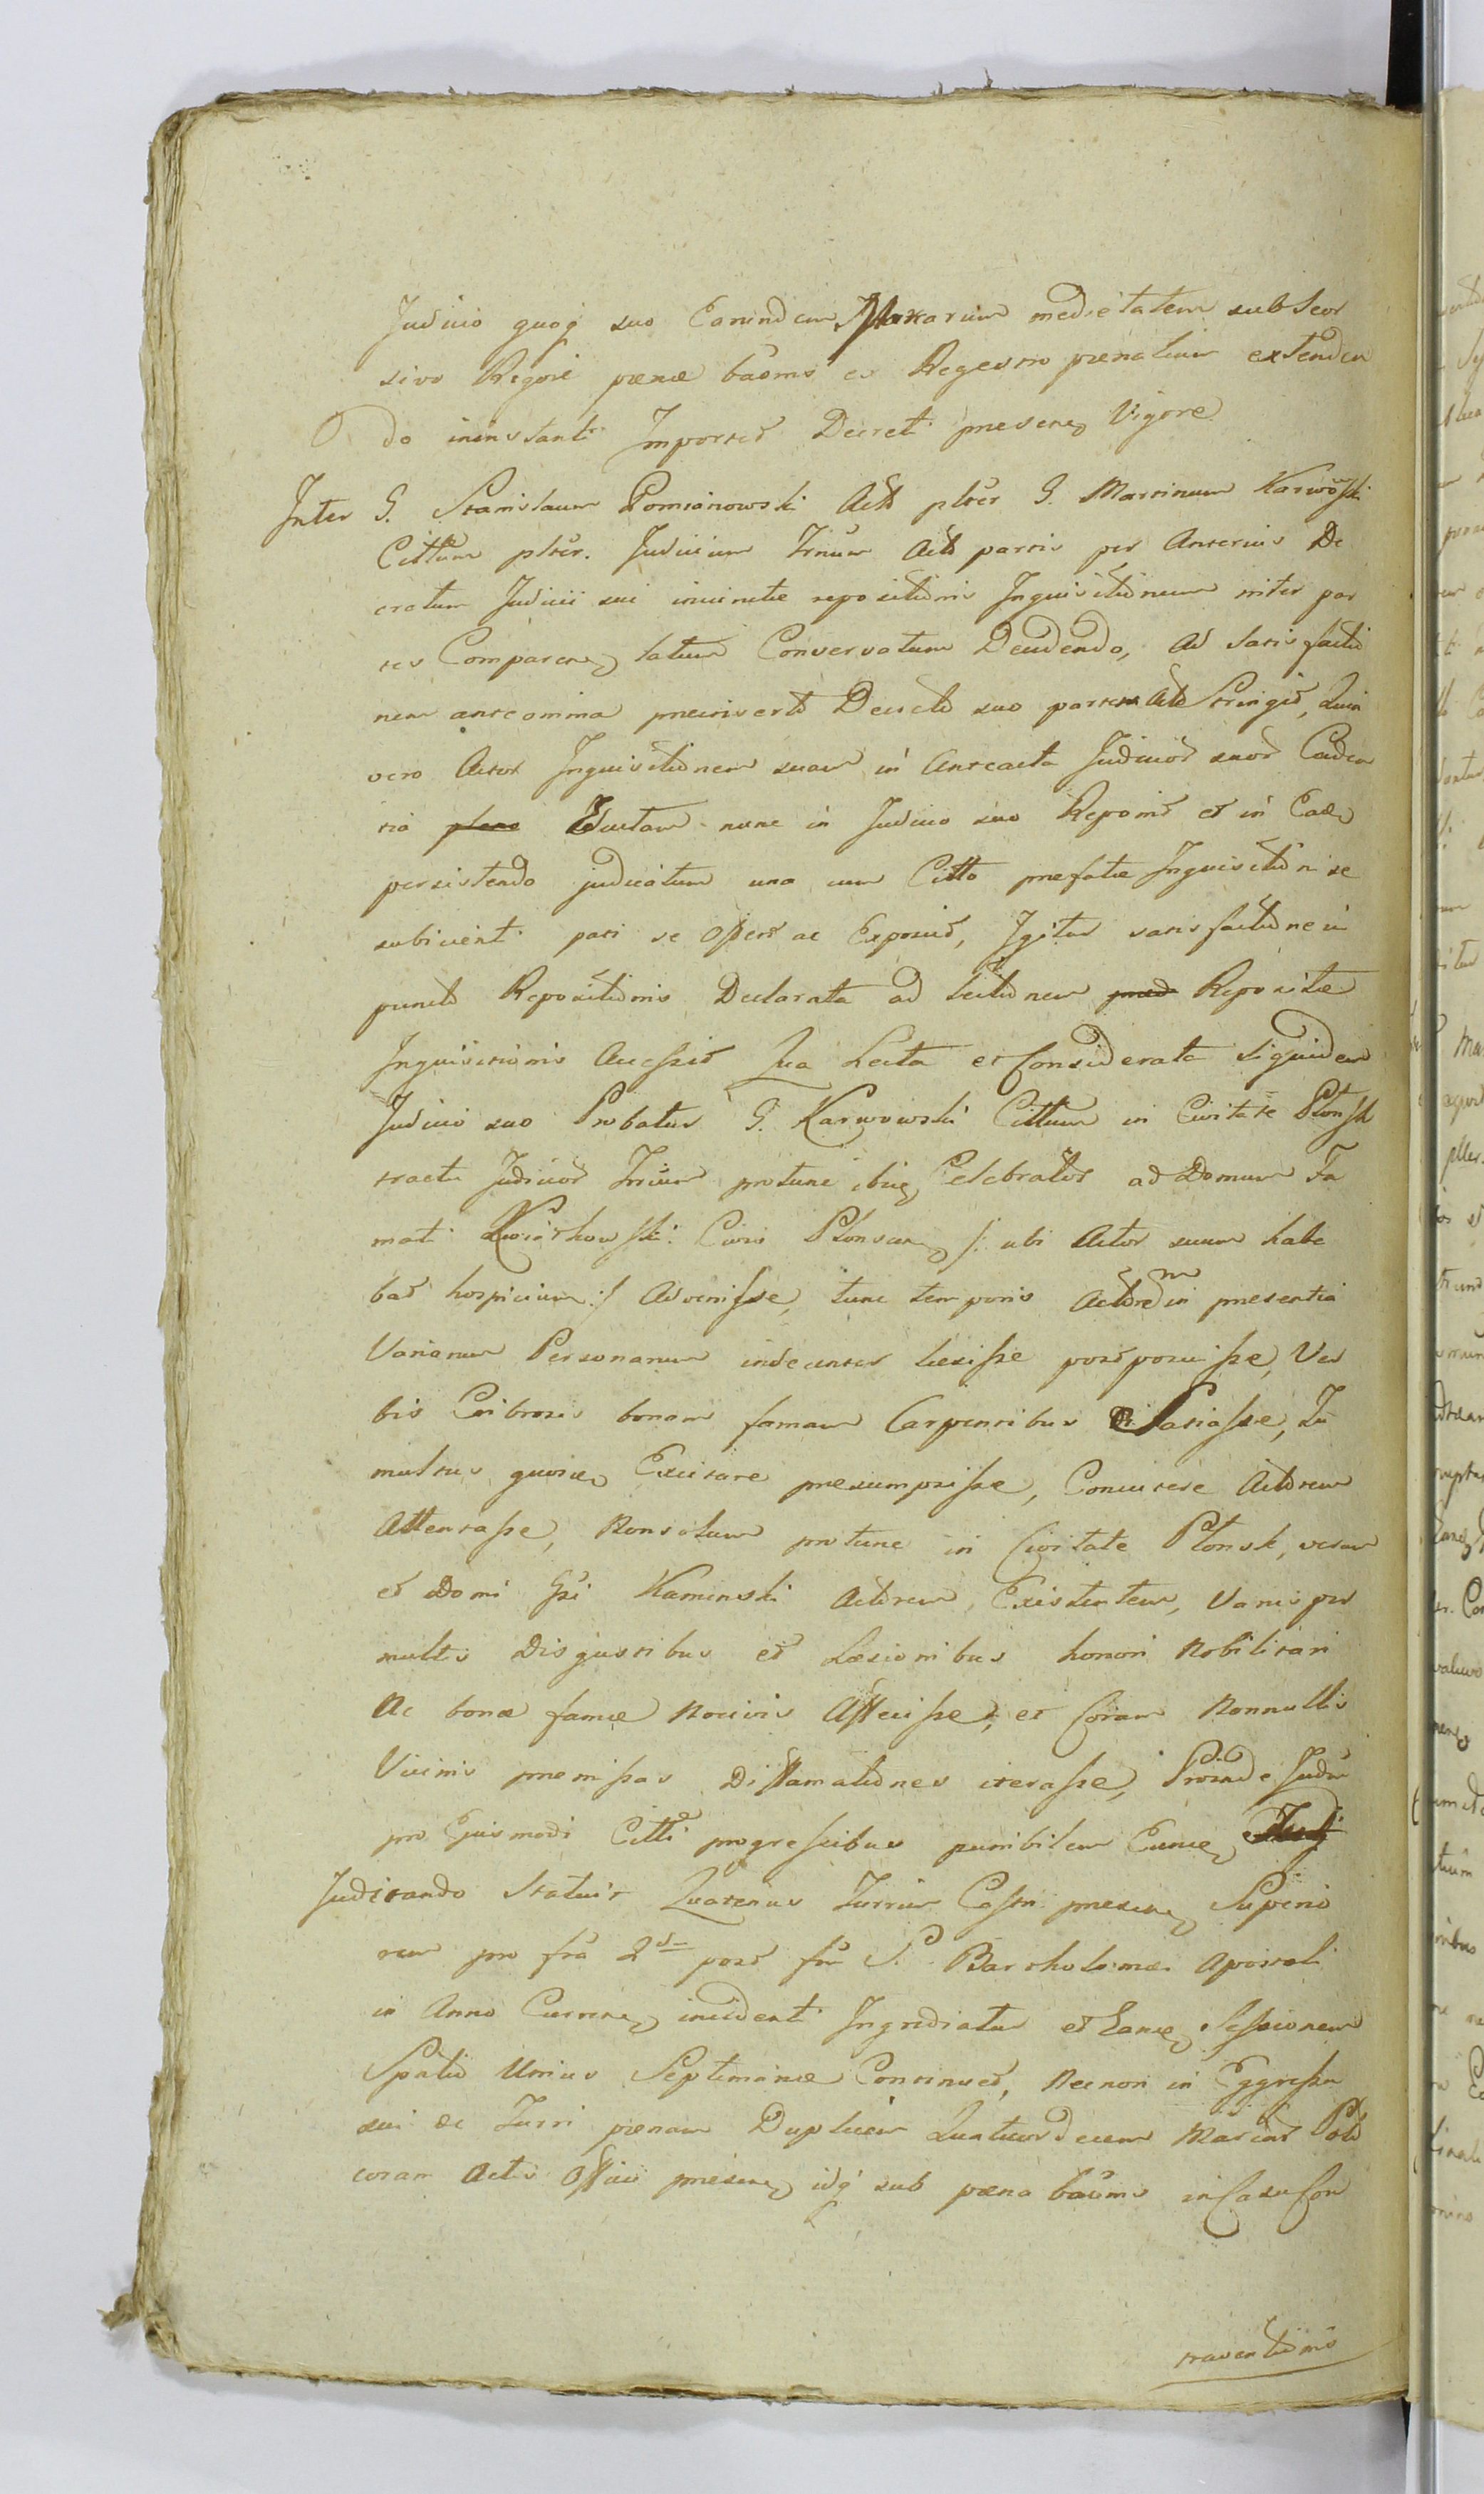 Judicio quoq suo Earundem Marcarum medietatem sub seor
sivo Rigore pœnæ baoms ex Regestro pœnalium extenden
do ininstanti Importet Decreti presene Vigore
Inter G. Stanislaum Pomianowski Act pltér G. Martinum Karwoski
Cittum pltér. Judicium Trnum Act partis per Anterius De
cretum Judicii sui reposistionis Inquisitionum inter par
tes Comparene latum Conservatum Deudendo, ad satisfactio
nem anteomnia Decreto suo partem Act Stringit, Quia
vero Actor Inquisitionem suam in Anteacta Judicior suor Caden
tia plane Eductam nunc in Judicio suo Reponit et in Ead
persistendo judicatum una cum Citto prefatæ Inquisitioni se
subicient pari se offert ac Exposuit, Igitur satisfactione in
puncto Repositionis Declarata ad lectionem præd Repositæ
Inquisitionis Accessit Qua Lecta et Considerata siquidem
Judicio suo Probatur G. Karwowski Cittum in Civitate Płonsk
tractu Judicior Trium protunc ibiq Celebrator ad Domum Fa
mati Kwiatkowski Civis Plonscen /: ubi Actor suum habe
bat hospicium :/ Advenisse, tunc temporis Actorem in presentia
Variarum Personarum indecenter læsisse postposuisse, Ver
bis Cribrosis bonam famam Carpentibus Satiasse, Tu
multus quovis Excitare presumpsisse, Concutere Actorem
Attentasse, Nonsolum protunc in Civitate Płonsk, verum
et Domi Gsi Kaminski Actorem Existentem, Variis per
multis Disgustibus et Læsionibus honori Nobilitari
Ac bonæ famæ Nocivis Affecisse, et Coram Nonnullis
Vicinis premissas Diffamationes iterasse, Proinde Judm
pro Ejusmodi Citti progressibus punibilem Eunæ
Judicando Statuit Quatenus Turrim Castri presene Superio
rem pro fra 2da post ftu S. Bartholomæi Apostoli
in Anno Currene incident Ingrediatur et Eane Sessionem
Spatio Unius Septimanæ Continuet, Necnon in Eggressu
sui de Turri pœnam Duplicem Quatuordecem Marcar Poló
coram Actis Officii presene idq sub pœna baoms in Casu Con
traventionis